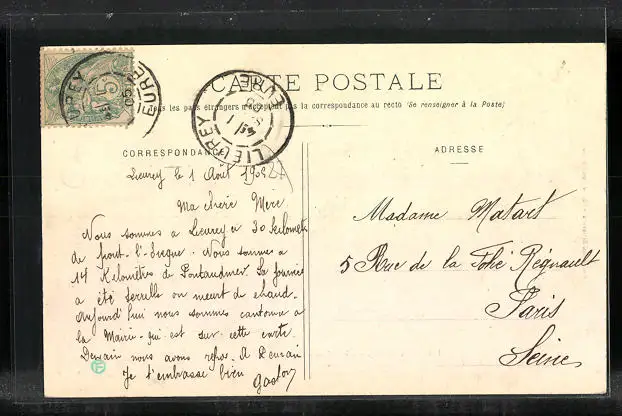 CARTE POSTALE
Tous les pays étrangers n'acceptent pas la correspondance au recto (Se renseigner à la Poste)
LIEUREY
EURE
5
LIEUREY
EURE
CORRESPONDANCE
ADRESSE
Lieurey le 1 Août 1905
Ma chère Mère
Nous sommes a Lieurey a 30 kilomets
de Pont-l'Eveque. Nous sommes a
14 Kilomètres de Pontaudmer. La journée
a été terrelle on meurt de chaud.
Aujourd'hui nous sommes cantonné a
la Mairie qui est sur cette carte.
Demain nous avons repos. A Demain
Je t'embrasse bien
Gaston
Madame Matart
5 Rue de la Folie Régnault
Paris
Seine